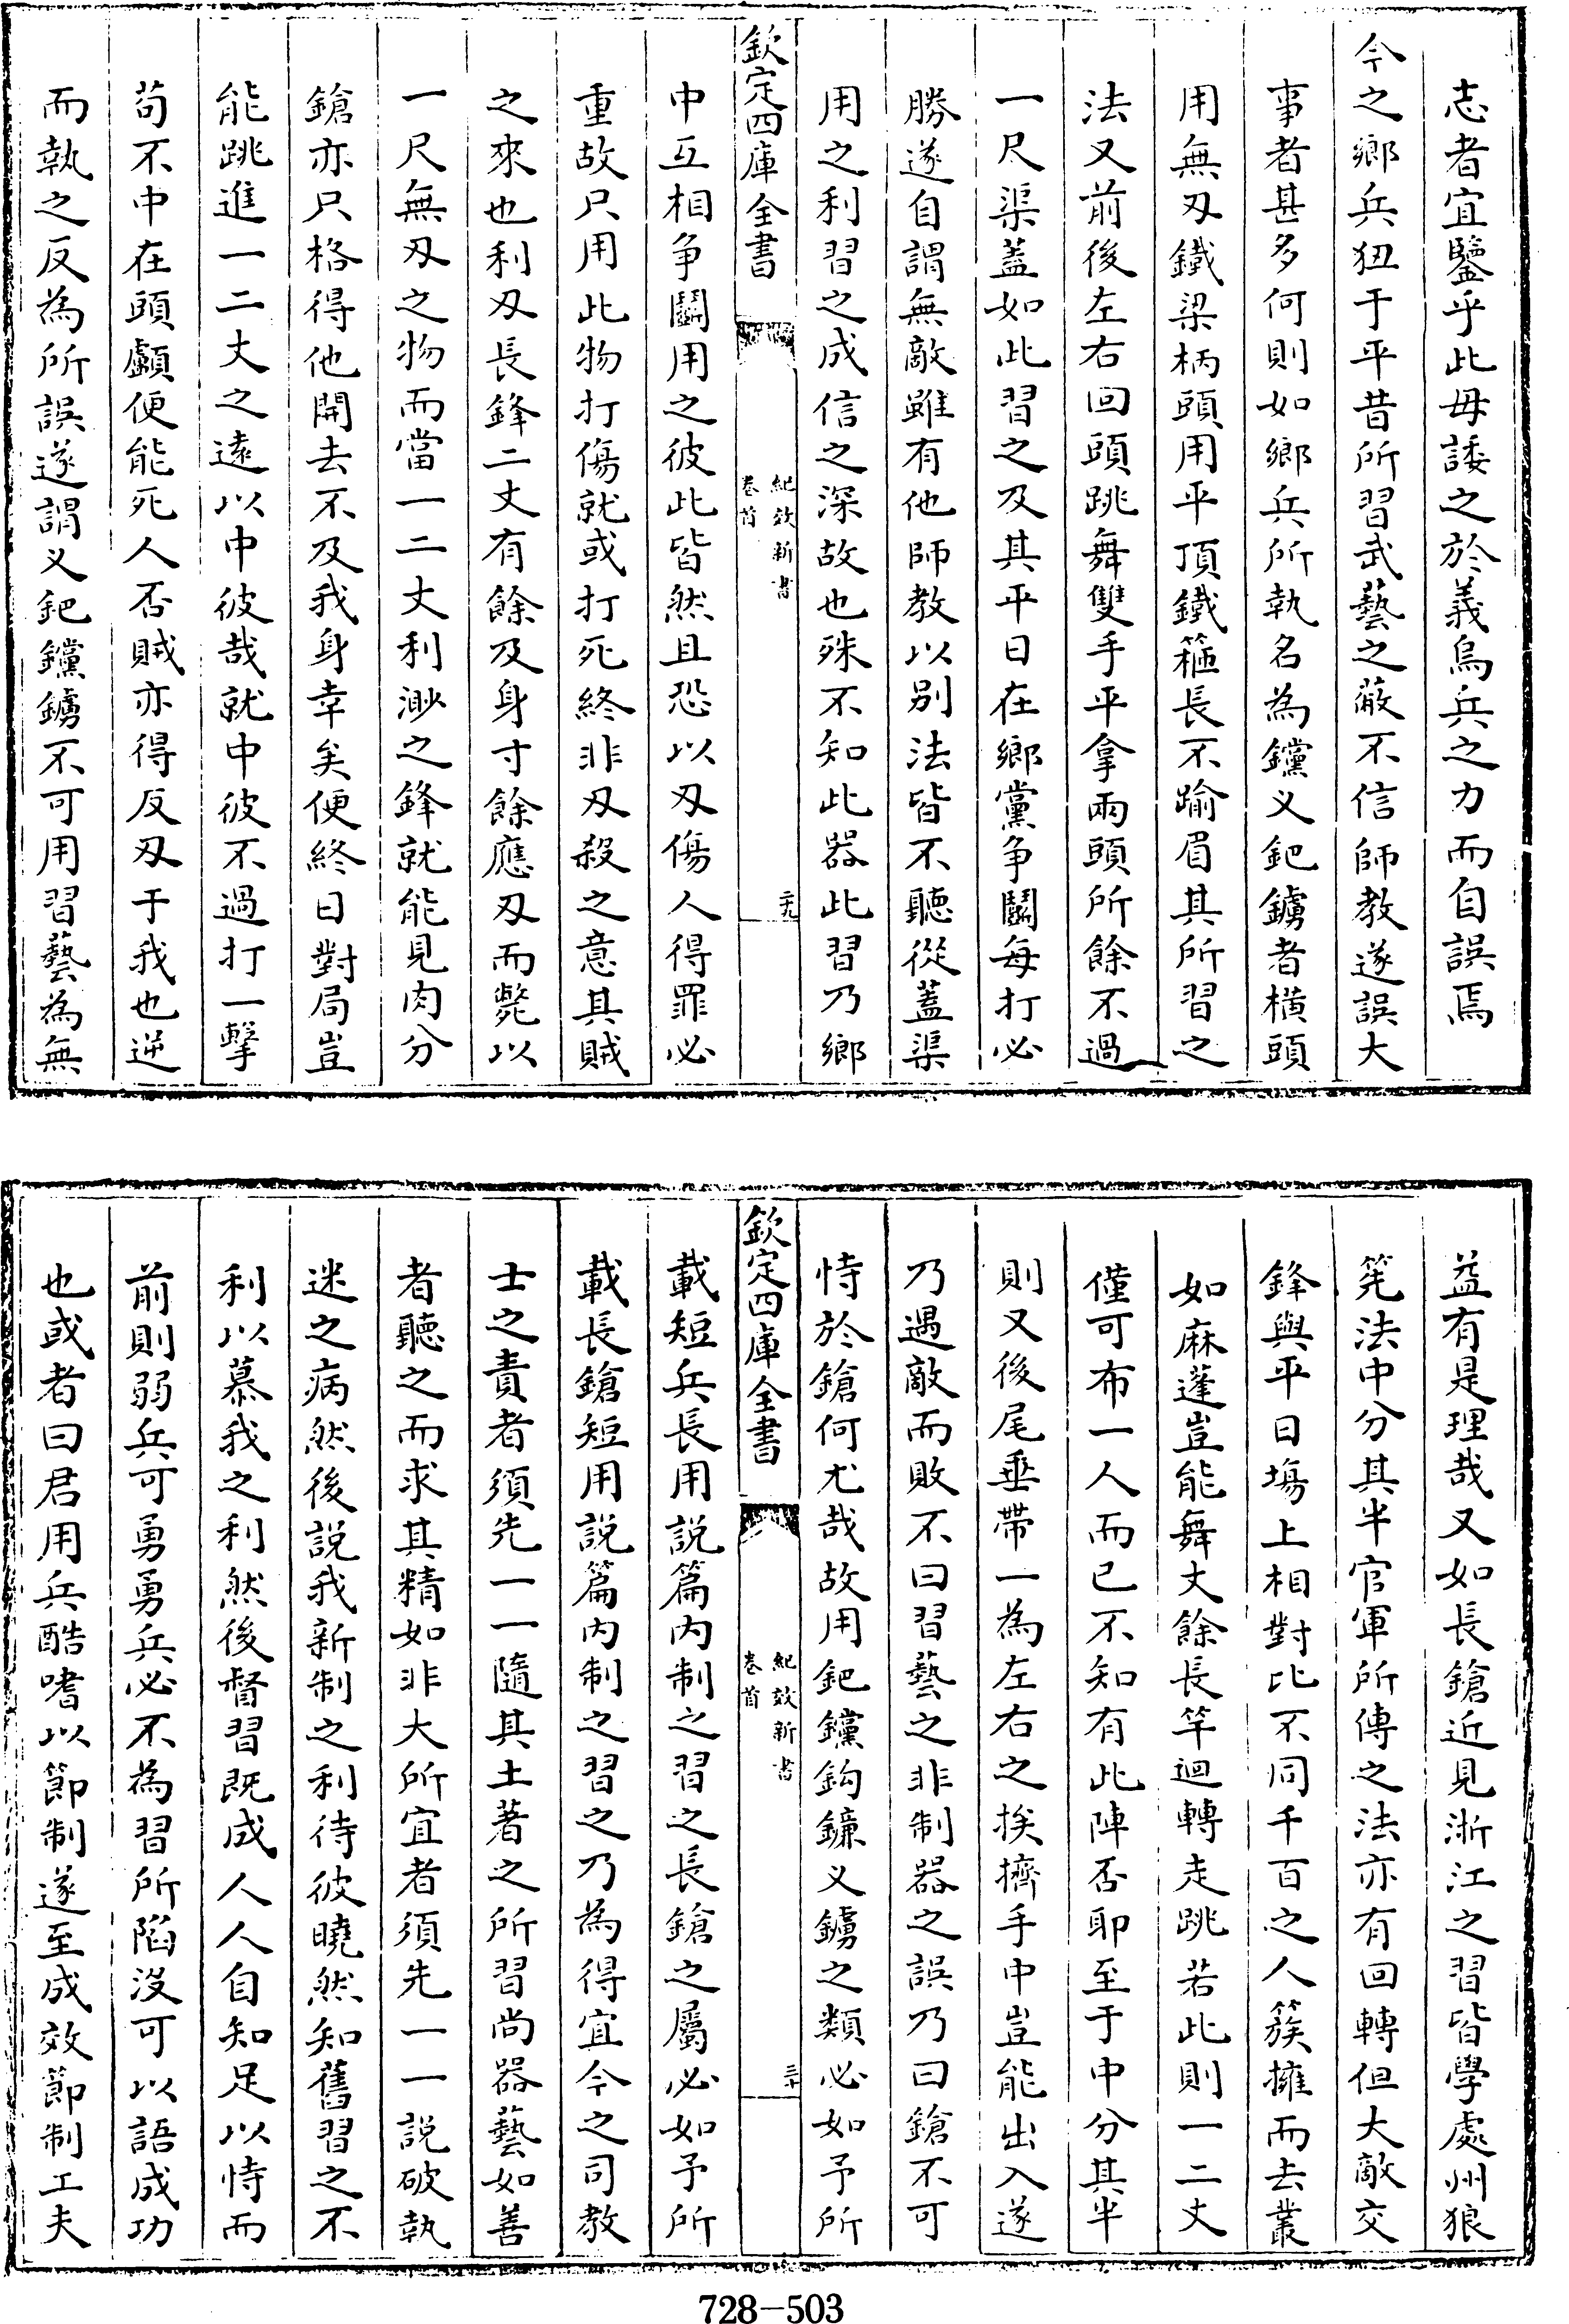 志者宜鑒乎此毋諉之於義烏兵之力而自誤焉
今之鄉兵狃于平昔所習武藝之蔽不信師教遂誤大
事者甚多何則如鄉兵所執名為钂义鈀鐪者橫頭
用無刄鐵梁柄頭用平頂鐵箍長不踰眉其所習之
法又前後左右回頭跳舞雙手平拿兩頭所餘不過
一尺渠蓋如此習之及其平日在鄉黨争鬭每打必
勝遂自謂無敵雖有他師教以别法皆不聽從蓋渠
用之利習之成信之深故也殊不知此器此習乃鄉
欽定四庫全書
紀效新書
卷首
二十九
中互相争鬭用之彼此皆然且恐以刄傷人得罪必
重故只用此物打傷就或打死終非刄殺之意其賊
之來也利刄長鋒二丈有餘及身寸餘應刄而斃以
一尺無刄之物而當一二丈利渺之鋒就能見肉分
鎗亦只格得他開去不及我身幸矣便終日對局豈
能跳進一二丈之遠以中彼哉就中彼不過打一擊
苟不中在頭顱便能死人否賊亦得反刄于我也逆
而執之反為所誤遂謂义鈀钂鐪不可用習藝為無
益有是理哉又如長鎗近見浙江之習皆學處州狼
筅法中分其半官軍所傳之法亦有回轉但大敵交
鋒與平日塲上相對比不同千百之人簇擁而去叢
如麻蓬豈能舞丈餘長竿迴轉走跳若此則一二丈
僅可布一人而已不知有此陣否耶至于中分其半
則又後尾垂帶一為左右之挨擠手中豈能出入遂
乃遇敵而敗不曰習藝之非制器之誤乃曰鎗不可
恃於鎗何尤哉故用鈀钂鈎鐮义鐪之類必如予所
欽定四庫全書
紀效新書
卷首
三十
載短兵長用説篇内制之習之長鎗之屬必如予所
載長鎗短用説篇内制之習之乃為得宜今之司教
士之責者須先一一隨其土著之所習尚器藝如善
者聽之而求其精如非大所宜者須先一一説破執
迷之病然後説我新制之利待彼曉然知舊習之不
利以慕我之利然後督習既成人人自知足以恃而
前則弱兵可勇勇兵必不為習所陷没可以語成功
也或者曰君用兵酷嗜以節制遂至成效節制工夫
728-503